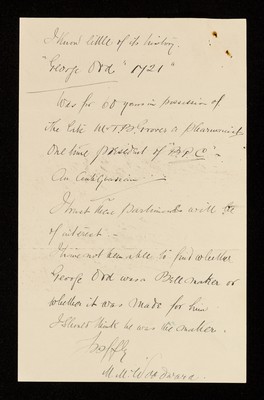 I know little of its history.
"George Ord" "1721"
Was for 60 years in possession of
the late Mr T. P. Groves a pharmacist
One time president of
An Antiquarian
I trust these particulars will be
of interest.
I have not been able to find whether
George Ord was a Bell maker or
whether it was made for him
I should think he was the maker.
M. M. Woodward